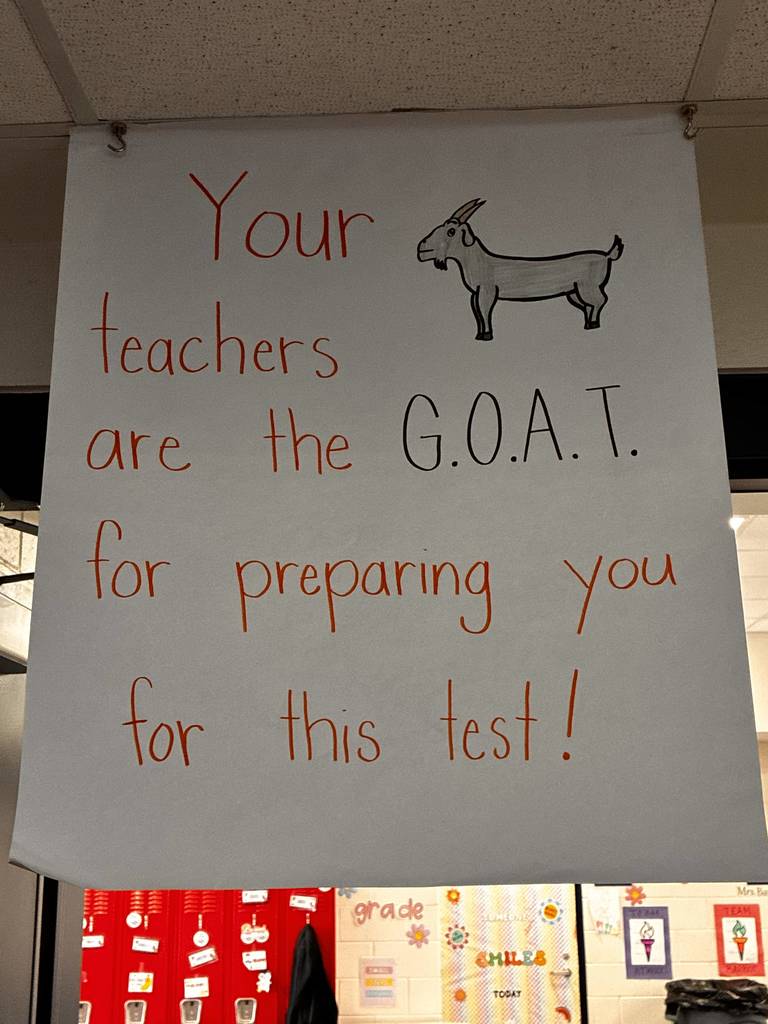 Your
teachers
are the G.O.A.T.
for preparing you
for this test!
grade
SMILES
TODAY
Mrs.
TEAM